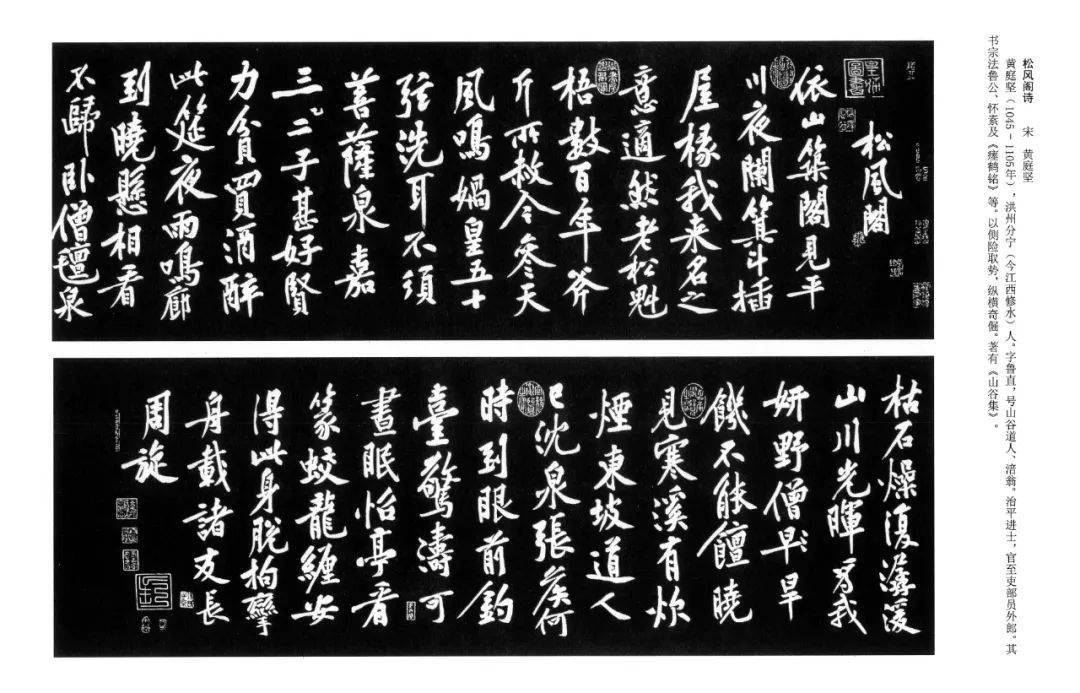 松风阁诗　宋　黄庭坚
黄庭坚（1045－1105年），洪州分宁（今江西修水）人。字鲁直，号山谷道人、涪翁，治平进士，官至吏部员外郎。其
书宗法鲁公、怀素及《瘗鹤铭》等。以侧险取势，纵横奇倔。著有《山谷集》。
皇姊圖書
松風閣
依山築閣見平
川夜闌箕斗插
屋椽我来名之
意適然老松魁
梧數百年斧
斤所赦今參天
風鳴媧皇五十
弦洗耳不須
菩薩泉嘉
三二子甚好賢
力貧買酒醉
此筵夜雨鳴廊
到曉懸相看
不歸卧僧氈泉
枯石燥復潺湲
山川光暉為我
妍野僧早旱
饑不能饘曉
見寒溪有炊
煙東坡道人
已沈泉張侯何
時到眼前釣
臺驚濤可
晝眠怡亭看
篆蛟龍纏安
得此身脫拘攣
舟載諸友長
周旋